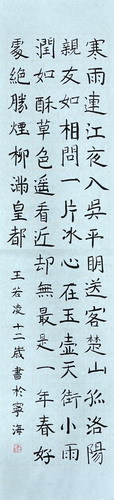 寒雨連江夜入吳平明送客楚山孤洛陽
親友如相問一片冰心在玉壺天街小雨
潤如酥草色遙看近却無最是一年春好
處絕勝煙柳滿皇都 王若凌十二歲書於寧海